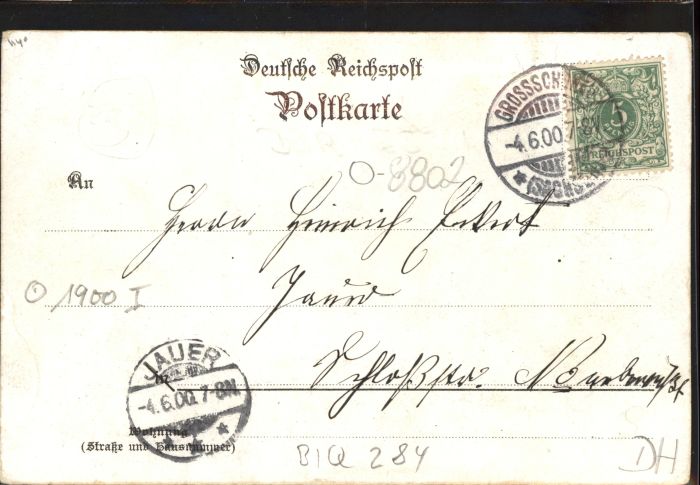 Deutsche Reichspost
Postkarte
GROSSSCH
-4.6.00.7
* (SACHS
5
PFENNIG
REICHSPOST
An
O-8802
Herrn Heinrich Eckert
Jauer
1900 I
JAUER
-4.6.00.7-8N.
* * *
in
Schloßstr.
Wohnung
(Straße und Hausnummer)
BIQ 284
DH